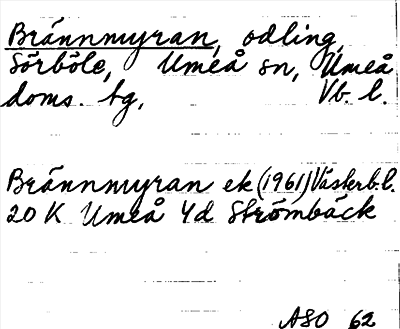 Brännmyran, odling,
Sörböle, Umeå sn, Umeå
doms. tg, Vb. l.
Brännmyran ek (1961) Västerb. l.
20 K Umeå 4d Strömbäck
ASO 62